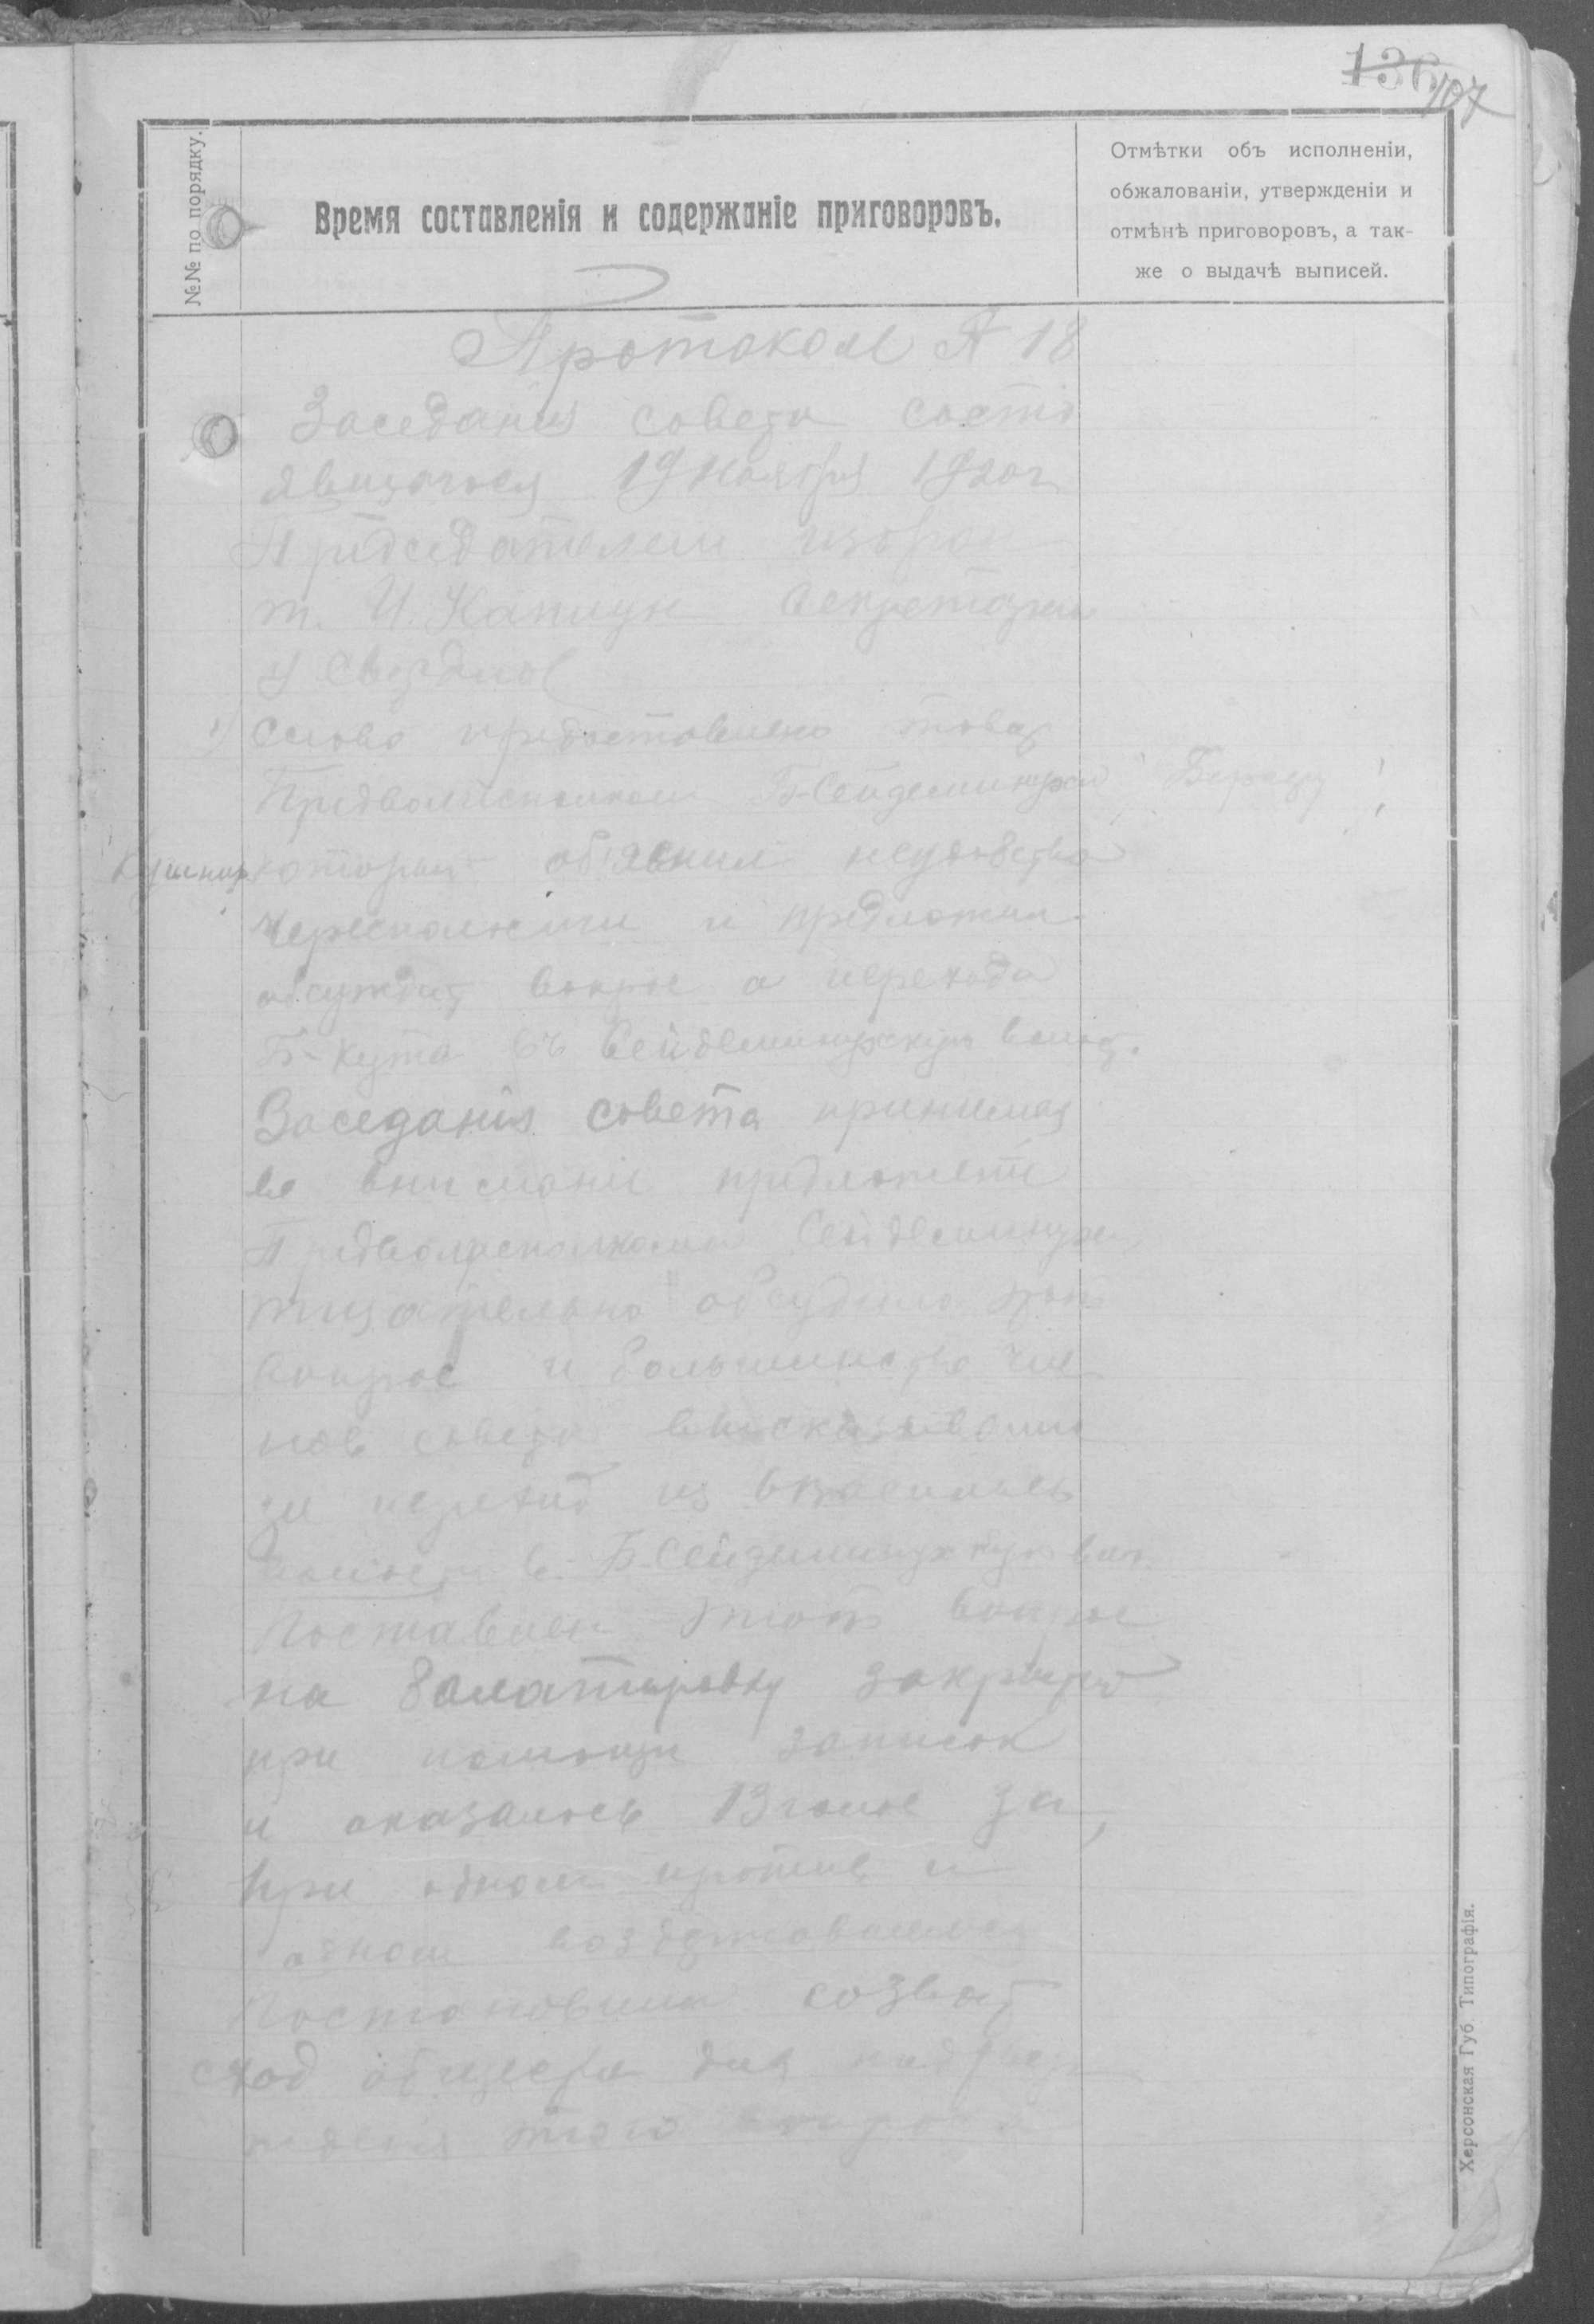 136 107
№№ по порядку.
Время составленія и содержаніе приговоровъ.
Отмѣтки объ исполненіи,
обжалованіи, утвержденіи и
отмѣнѣ приговоровъ, а так-
же о выдачѣ выписей.
Протокол № 18
Заседания совета состо
явшагося 19 Ноября 1920 г
Председателем избран
т. И. Капцун Секретарем
1) Слово предоставлено товар
Предволисполкома Б-Сейдеминухи
который об'явил неудобства
Череcполосици и предложил
обсудить вопрос о перехода
Б-Кута въ Сейдеминухскую волост.
Заседанія совета принимая
во внимание предложение
Предволисполкома Сейдеминухи
тщательно обсудило этот
вопрос и большинство чле
нов совета высказавшис
за переход из
в Б-Сейдеминухскую вол.
Поставлен этот вопрос
на балатировку закрытую
при помощи записок
и оказалось 13 голос за,
при одном против и
одном воздержавшемся
Постановили созвать
сход общества для
этого вопроса
Херсонская Губ. Типографія.